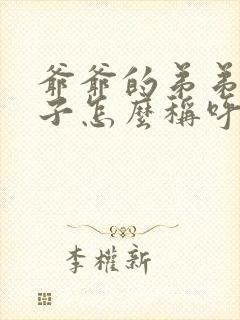 爺爺的弟弟
子怎麼稱呼
李權新